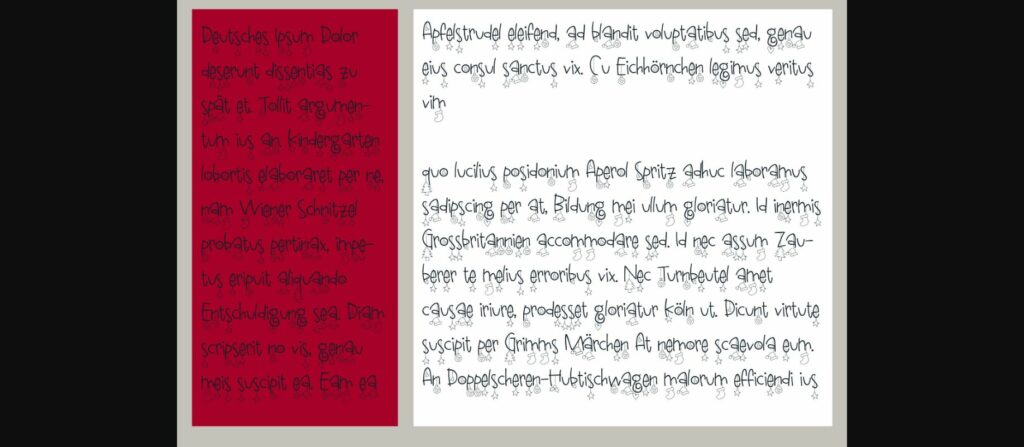 Deutsches Ipsum Dolor
deserunt dissentias zu
spät et. Tollit argumen-
tum ius an. Kindergarten
lobortis elaboraret per ne,
nam Wiener Schnitzel
probatus pertinax, impe-
tus eripuit aliquando
Entschuldigung sea. Diam
scripserit no vis, genau
meis suscipit ea. Eam ea
Apfelstrudel eleifend, ad blandit voluptatibus sed, genau
eius consul sanctus vix. Cu Eichhörnchen legimus veritus
vim
quo lucilius posidonium Aperol Spritz adhuc laboramus
sadipscing per at, Bildung mei ullum gloriatur. Id inermis
Grossbritannien accommodare sed. Id nec assum Zau-
berer te melius erroribus vix. Nec Turnbeutel amet
causae iriure, prodesset gloriatur köln ut. Dicunt virtute
suscipit per Grimms Märchen At nemore scaevola eum.
An Doppelscheren-Hubtischwagen malorum efficiendi ius